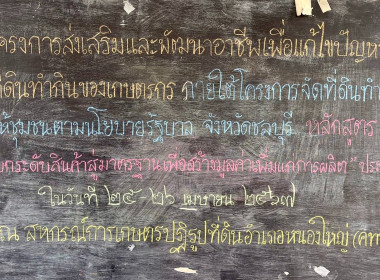 ครงการส่งเสริมและพัฒนาอาชีพเพื่อแก้ไขปัญห
ดินทำกินของเกษตรกร ภายใต้โครงการจัดที่ดินทำ
ห้ชุมชนตามนโยบายรัฐบาล จังหวัดชลบุรี หลักสูตร
กระดับสินค้าสู่มาตรฐานเพื่อสร้างมูลค่าเพิ่มแก่การผลิต" ประ
ในวันที่ ๒๕-๒๖ เมษายน ๒๕๖๗
ณ สหกรณ์การเกษตรปฏิรูปที่ดินอำเภอหนองใหญ่ (คท